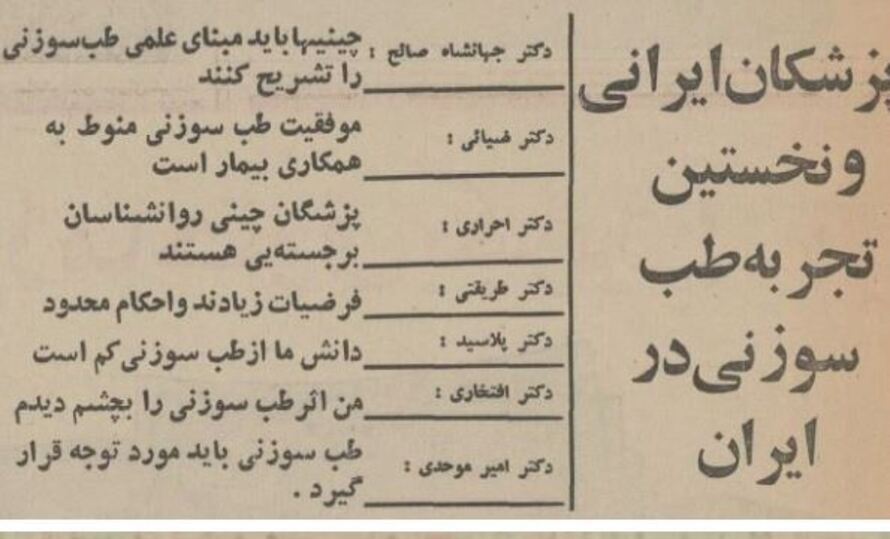 پزشکان ایرانی
و نخستین
تجربه طب
سوزنی در
ایران
دکتر جهانشاه صالح :
چینیها باید مبنای علمی طب سوزنی
را تشریح کنند
دکتر ضیائی :
موفقیت طب سوزنی منوط به
همکاری بیمار است
دکتر احراری :
پزشگان چینی روانشناسان
برجسته‌یی هستند
دکتر طریقتی :
فرضیات زیادند و احکام محدود
دکتر پلاسید :
دانش ما از طب سوزنی کم است
دکتر افتخاری :
من اثر طب سوزنی را بچشم دیدم
دکتر امیر موحدی :
طب سوزنی باید مورد توجه قرار
گیرد .